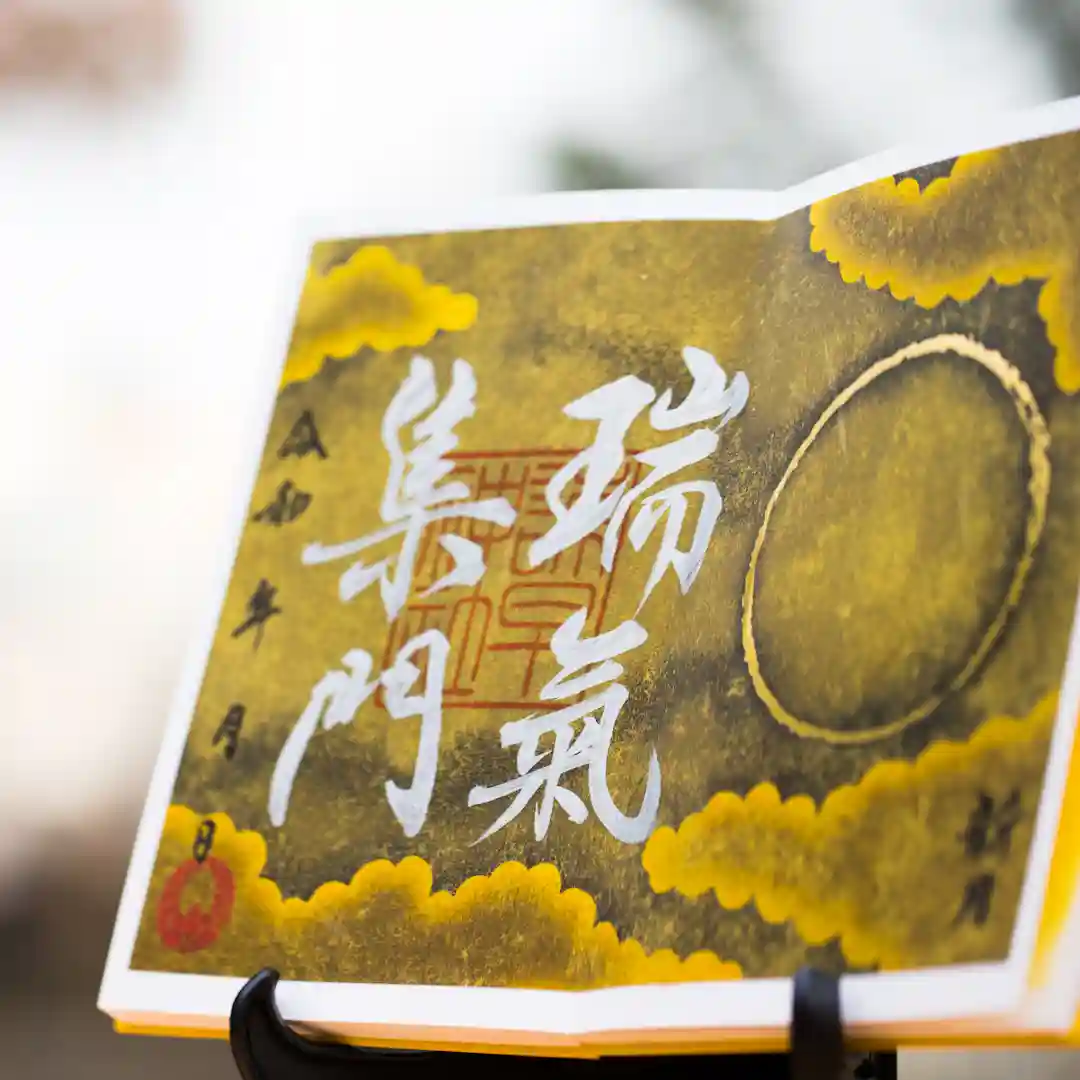 新月
瑞氣
集門
令和 年 月 日